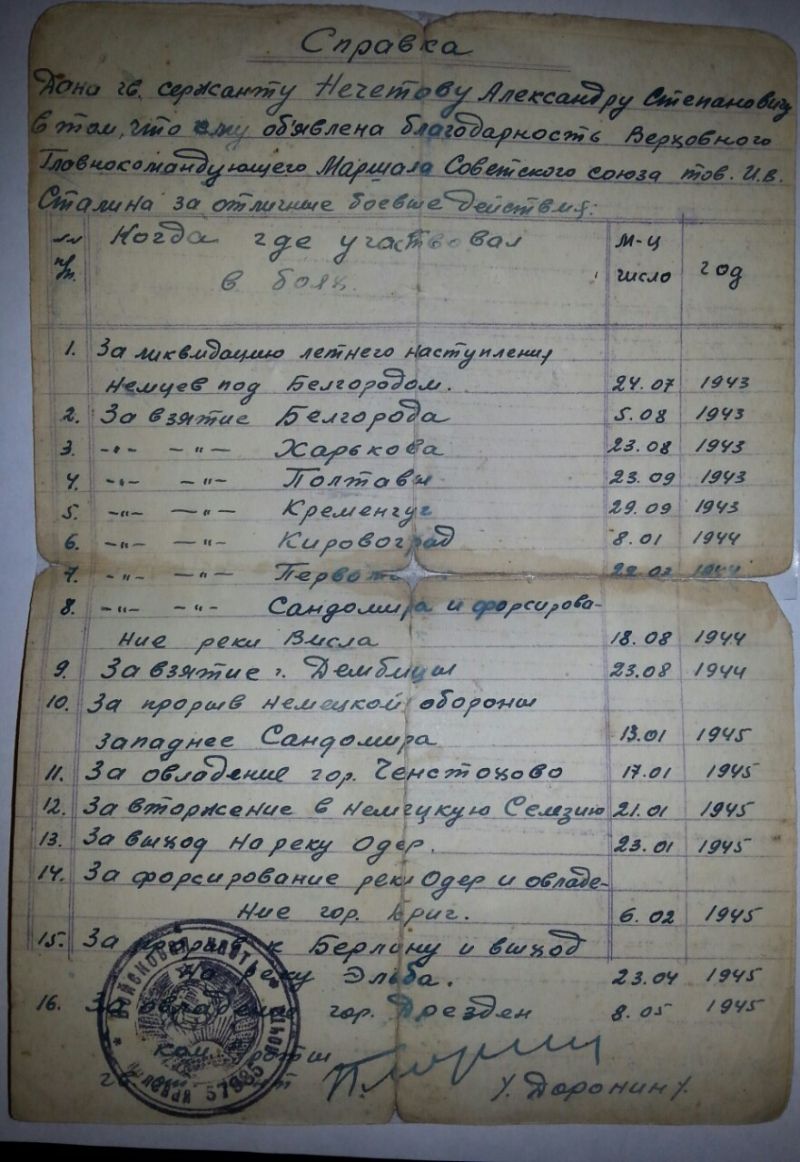 Справка
Дана гв. сержанту Нечетову Александру Степановичу
в том, что ему об'явлена благодарность Верховного
Главнокомандующего Маршала Советского союза тов. И.В.
Сталина за отличные боевые действия:
п/п. Когда где участвовал м-ц год
в боях. число
1. За ликвидацию летнего наступления
немцев под Белгородом. 24.07 1943
2. За взятие Белгорода 5.08 1943
3. -"- -"- Харькова 23.08 1943
4. -"- -"- Полтавы 23.09 1943
5. -"- -"- Кременчуг 29.09 1943
6. -"- -"- Кировоград 8.01 1944
7. -"- -"- 1944
8. -"- -"- Сандомира и форсирова-
ние реки Висла 18.08 1944
9. За взятие г. Дембицы 23.08 1944
10. За прорыв немецкой обороны
западнее Сандомира 13.01 1945
11. За овладение гор. Ченстохово 17.01 1945
12. За вторжение в немецкую Селезию 21.01 1945
13. За выход на реку Одер. 23.01 1945
14. За форсирование реки Одер и овладе-
ние гор. Бриг. 6.02 1945
15. За прорыв к Берлину и выход
на реку Эльба. 23.04 1945
16. За овладение гор. Дрезден 8.05 1945
ком. роты
гв. /Доронин/.
ВОЙСКОВАЯ ЧАСТЬ ПОЛЕВАЯ ПОЧТА 57885